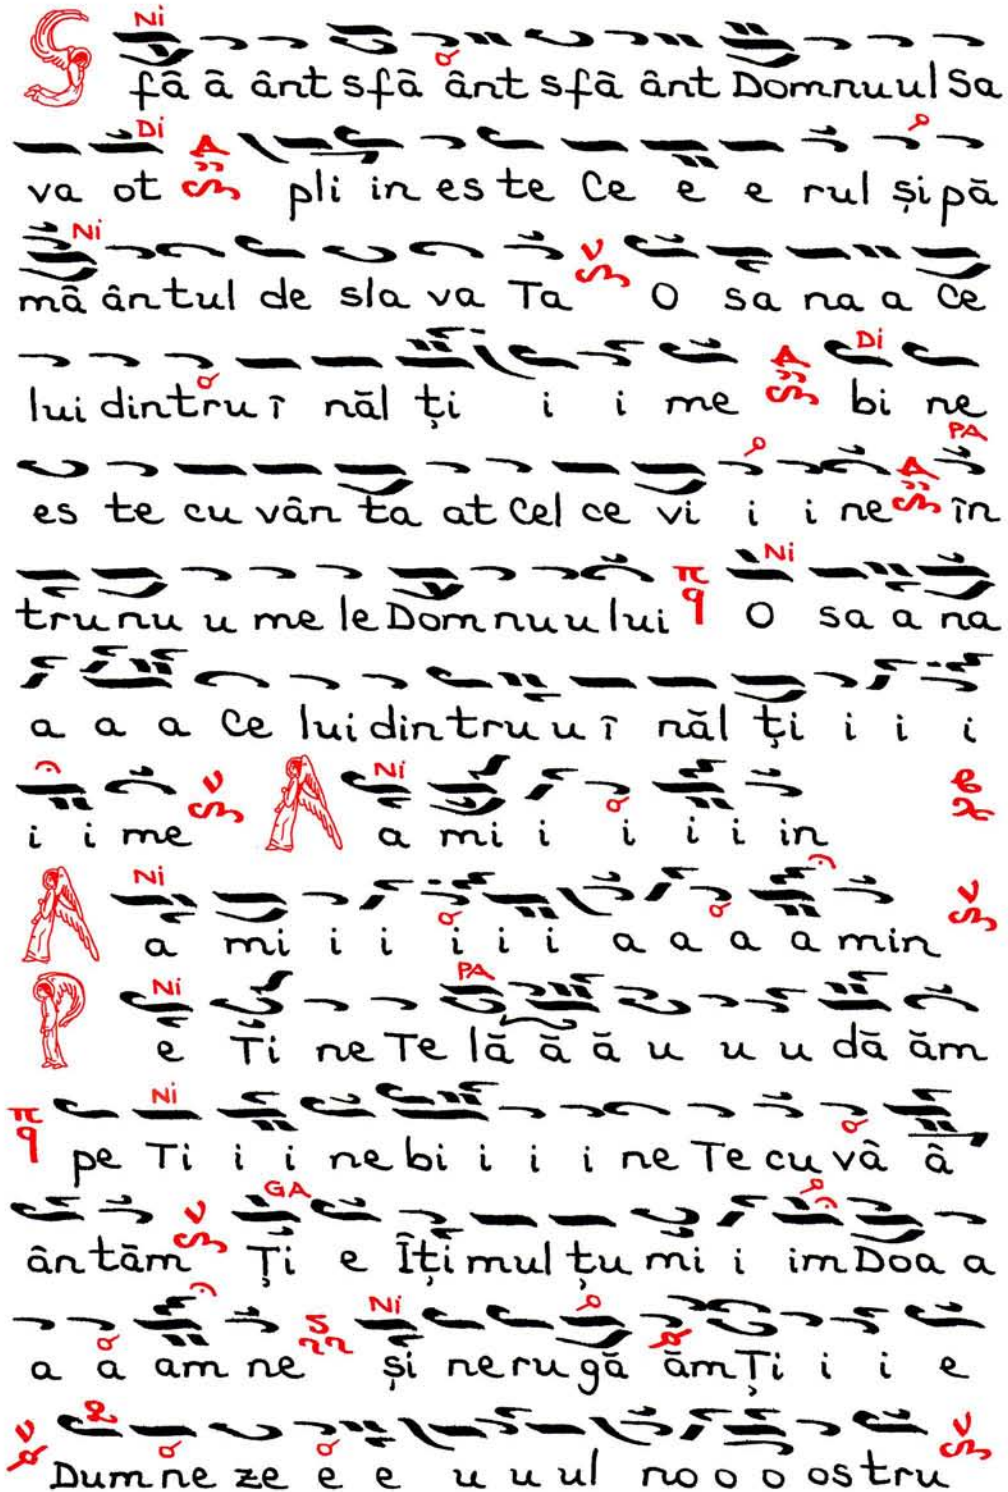 Ni
S fâ â ânt sfâ ânt sfâ ânt Domnuul Sa
Di
va ot pli in es te Ce e e rul și pă
Ni
mâ ântul de sla va Ta O sa na a Ce
Di
lui dintru î năl ți i i me bi ne
PA
es te cu vân ta at Cel ce vi i i ne în
Ni
tru nu u me le Dom nuu lui π q O sa a na
a a a Ce lui dintru u î năl ți i i i
Ni
i i me A a mi i i i i in
Ni
A a mi i i i i i a a a a min
Ni PA
P e Ti ne Te lă ă ă u u u dă ăm
Ni
π q pe Ti i i ne bi i i i ne Te cu vâ â
GA
ân tăm Ți e Îți mul țu mi i im Doa a
Ni
a a am ne și ne ru gă ăm Ți i i e
Dum ne ze e e u u ul no o o os tru